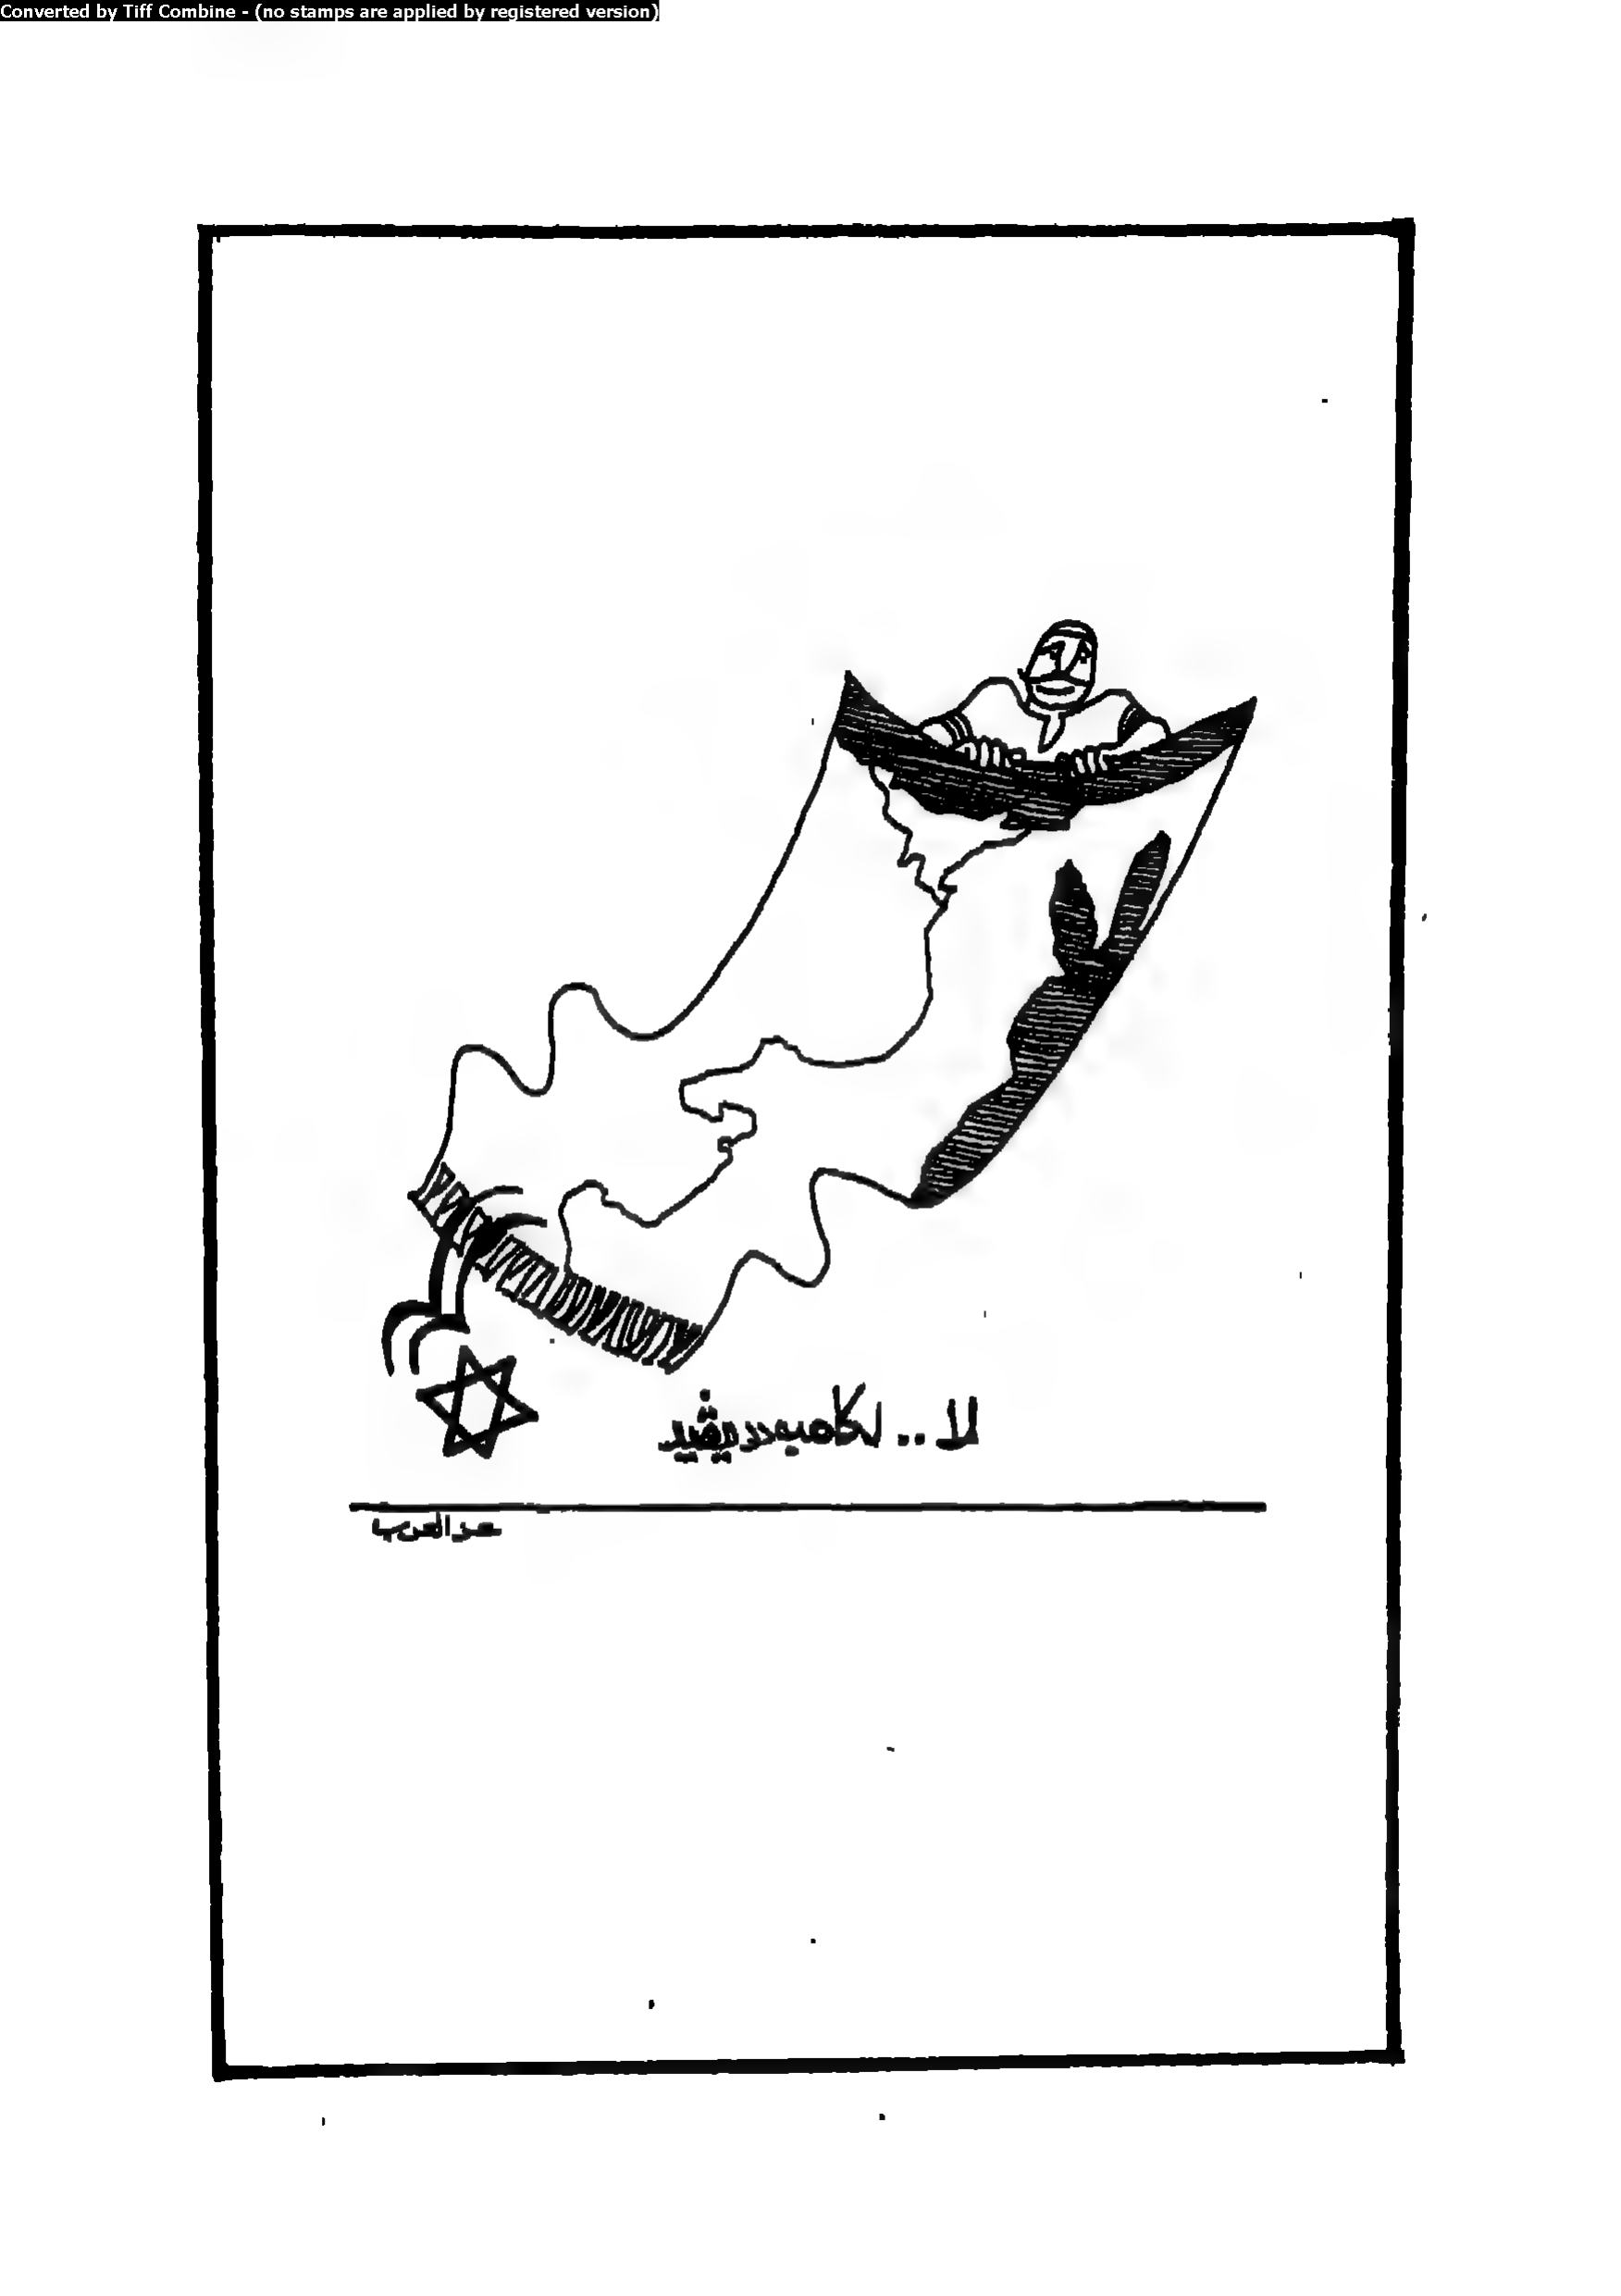 Converted by Tiff Combine - (no stamps are applied by registered version)
لا .. لكامب ديفيد